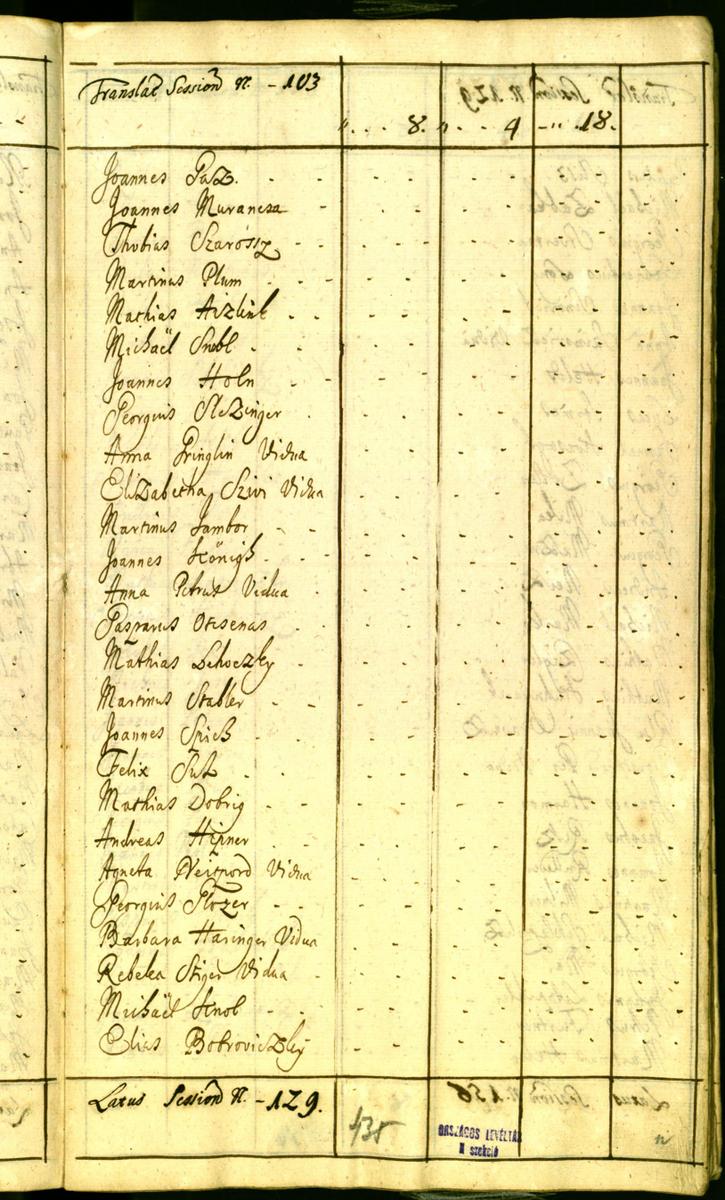 Translat Session N. - 103
" . . . 8. " . . . 4 - " . 18.
Joannes Paz.
Joannes Muranesa
Thobias Szarossz
Martinus Plum
Mathias Aizlink
Michaël Snobl
Joannes Holn
Georgius Slezinger
Anna Pringlin Vidua
Elizabetha Szivi Vidua
Martinus Jambor
Joannes Königh
Anna Petrus Vidua
Gasparus Otsenas
Mathias Lehoczky
Martinus Stabler
Joannes Spich
Felix
Mathias Dobrig
Andreas Hipner
Agneta Vidua
Georgius
Barbara Haringer Vidua
Rebeka Stiger Vidua
Michaël Knob
Elias Bobroviczky
Latus Session N. - 129.
435
ORSZÁGOS LEVÉLTÁR
II szekció